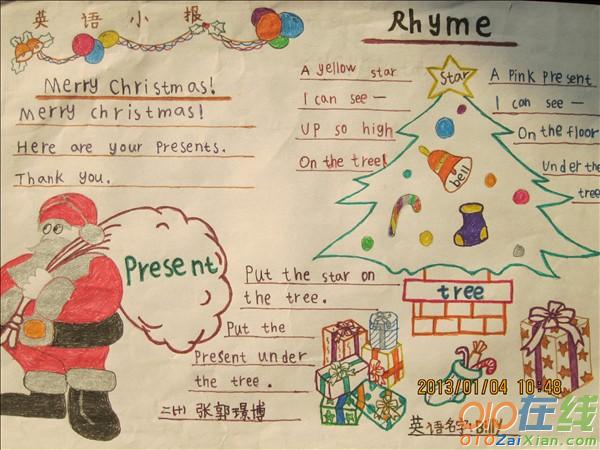 英语小报
Merry Christmas!
Merry christmas!
Here are your Presents.
Thank you.
Present
Put the star on
the tree.
Put the
Present under
the tree.
Rhyme
A yellow star
I can see —
UP so high
On the tree!
Star
A Pink Present
I can see —
On the floor
Under the
tree
bell
tree
张郭璟博
英语名字:Billy
2013/01/04 10:48
010在线
010ZaiXian.com